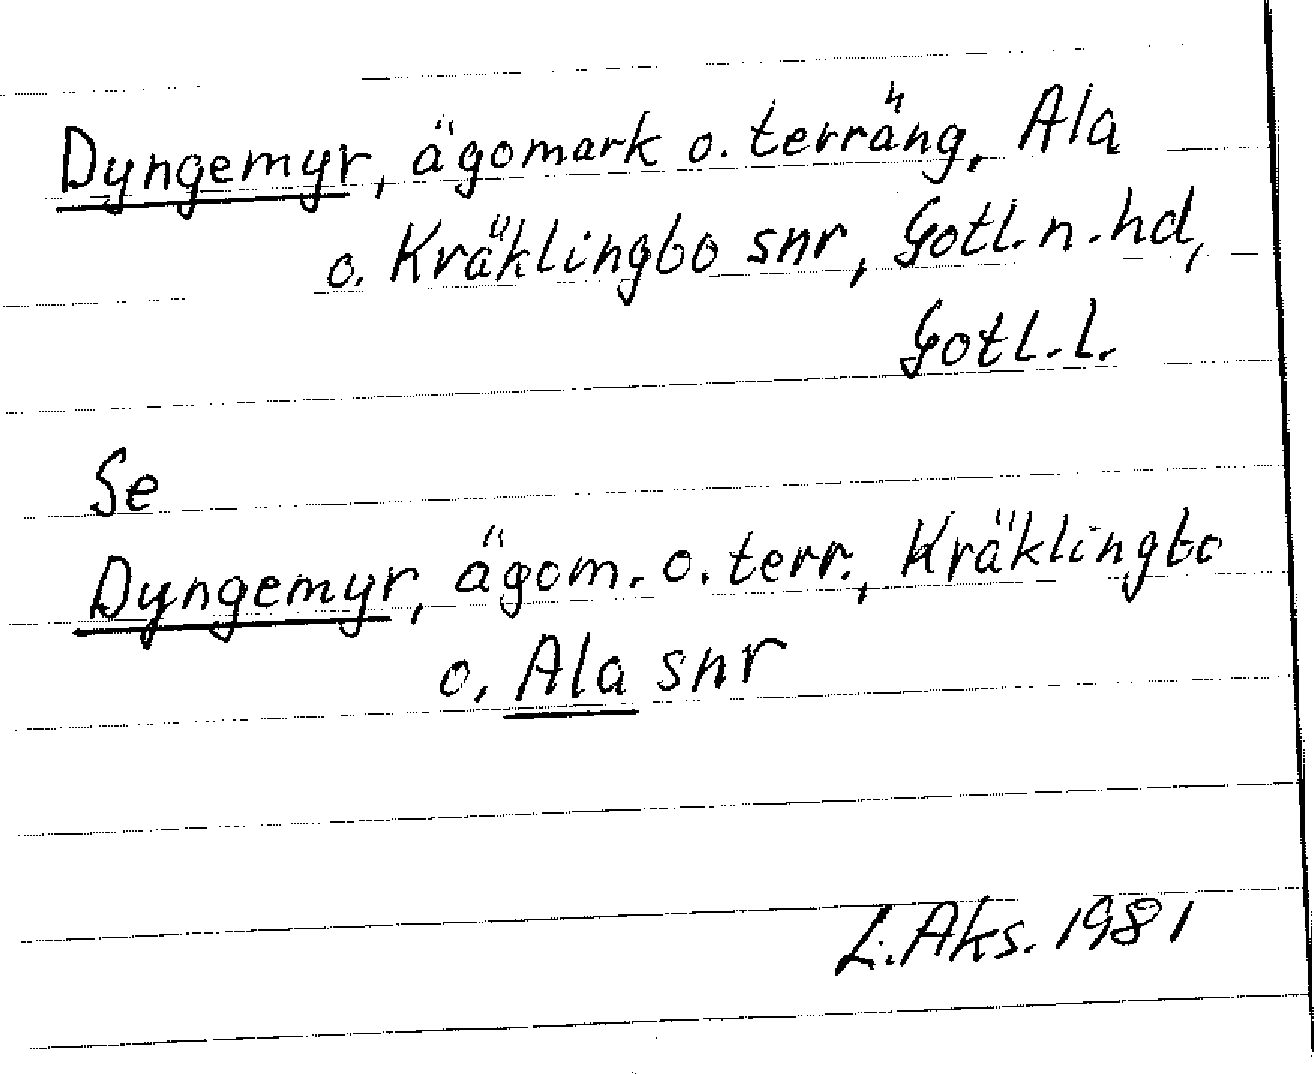 Dyngemyr, ägomark o. terräng, Ala
o. Kräklingbo snr, Gotl. n. hd,
Gotl. l.
Se
Dyngemyr, ägom. o. terr., Kräklingbo
o. Ala snr
L. Aks. 1981